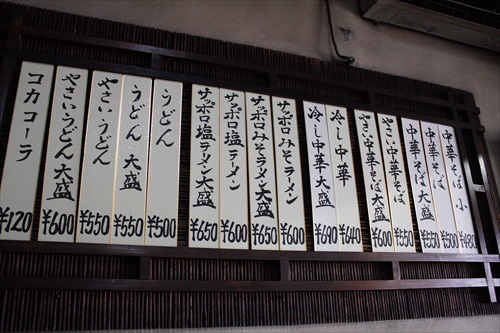 中華そば 小 ¥480
中華そば ¥500
中華そば 大盛 ¥550
やさい中華そば ¥550
やさい中華そば 大盛 ¥600
冷し中華 ¥640
冷し中華 大盛 ¥690
サッポロみそラーメン ¥600
サッポロみそラーメン大盛 ¥650
サッポロ塩ラーメン ¥600
サッポロ塩ラーメン大盛 ¥650
うどん ¥500
うどん 大盛 ¥550
やさいうどん ¥550
やさいうどん 大盛 ¥600
コカコーラ ¥120